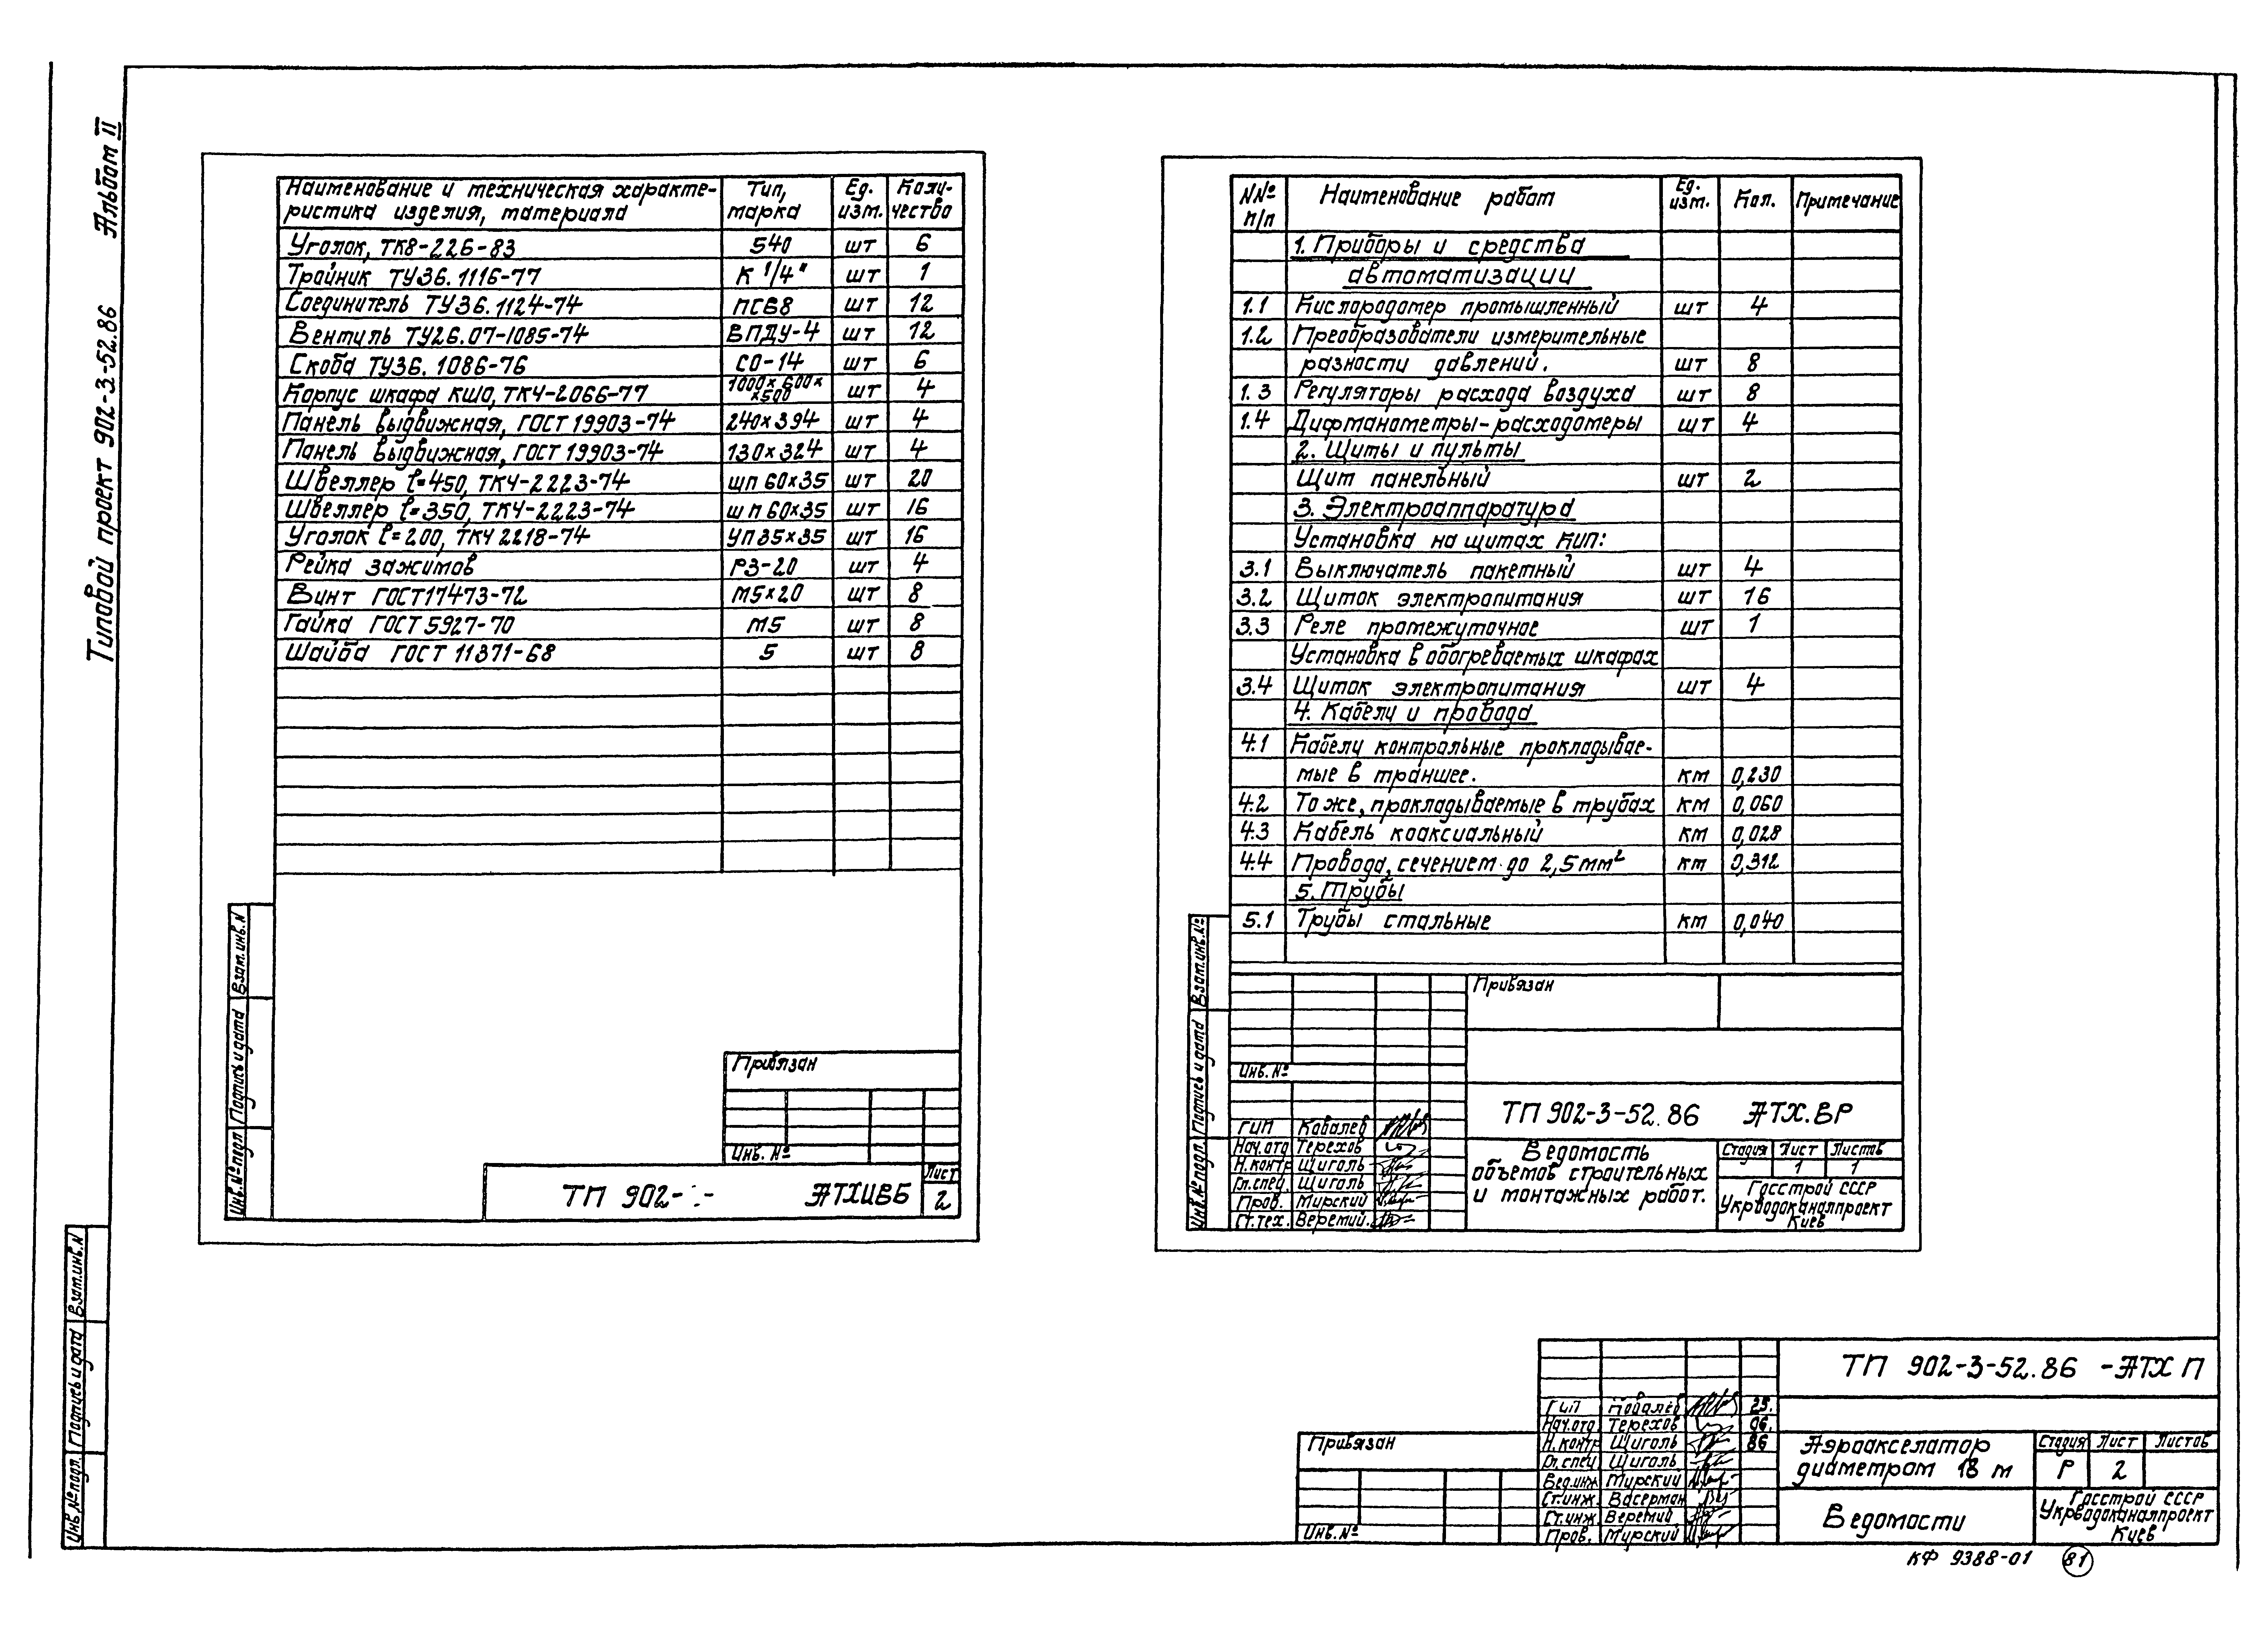 Типовой проект 902-3-52.86 Альбом II
Наименование и техническая характе-
ристика изделия, материала
Тип,
марка
Ед.
изм.
Коли-
чество
Уголок, ТК8-226-83 540 шт 6
Тройник ТУ36.1116-77 К 1/4" шт 1
Соединитель ТУ36.1124-74 ПСВ8 шт 12
Вентиль ТУ26.07-1085-74 ВПДУ-4 шт 12
Скоба ТУ36.1086-76 СО-14 шт 6
Корпус шкафа КШО, ТК4-2066-77 1000×600××500 шт 4
Панель выдвижная, ГОСТ 19903-74 240×394 шт 4
Панель выдвижная, ГОСТ 19903-74 130×324 шт 4
Швеллер ℓ=450, ТК4-2223-74 шп 60×35 шт 20
Швеллер ℓ=350, ТК4-2223-74 шп 60×35 шт 16
Уголок ℓ=200, ТК4 2218-74 УП35×35 шт 16
Рейка зажимов РЗ-20 шт 4
Винт ГОСТ17473-72 М5×20 шт 8
Гайка ГОСТ 5927-70 М5 шт 8
Шайба ГОСТ 11371-68 5 шт 8
Привязан
Инв. №
ТП 902- - АТХИВБ
Лист
2
Инв.№подл Подпись и дата Взам.инв.N
NNº
п/п
Наименование работ
Ед.
изм.
Кол.
Примечание
1. Приборы и средства
автоматизации
1.1 Кислородомер промышленный шт 4
1.2 Преобразователи измерительные
разности давлений. шт 8
1.3 Регуляторы расхода воздуха шт 8
1.4 Дифманометры-расходомеры шт 4
2. Щиты и пульты
Щит панельный шт 2
3. Электроаппаратура
Установка на щитах КИП:
3.1 Выключатель пакетный шт 4
3.2 Щиток электропитания шт 16
3.3 Реле промежуточное шт 1
Установка в обогреваемых шкафах
3.4 Щиток электропитания шт 4
4. Кабели и провода
4.1 Кабели контрольные прокладывае-
мые в траншее. км 0,230
4.2 То же, прокладываемые в трубах км 0,060
4.3 Кабель коаксиальный км 0,028
4.4 Провода, сечением до 2,5мм² км 0,312
5. Трубы
5.1 Трубы стальные км 0,040
Привязан
Инв. №
ГИП Ковалев
Нач.отд Терехов
Н.контр Щиголь
Гл.спец. Щиголь
Пров. Мирский
Ст.тех. Веремий.
ТП 902-3-52.86 АТХ.ВР
Ведомость
объемов строительных
и монтажных работ.
Стадия Лист Листов
1 1
Госстрой СССР
Укрводоканалпроект
Киев
Инв.№подл. Подпись и дата Взам.инв.№
Инв.№подл. Подпись и дата Взам.инв.N
Привязан
Инв.№
ГИП Ковалев 25.
Нач.отд. Терехов 06.
Н.контр Щиголь 86
Гл.спец Щиголь
Вед.инж Мирский
Ст.инж. Васерман
Ст.инж. Веремий
Пров. Мирский
ТП 902-3-52.86 -АТХ П
Аэроакселатор
диаметром 18 м
Стадия Лист Листов
Р 2
Ведомости
Госстрой СССР
Укрводоканалпроект
Киев
КФ 9388-01 81